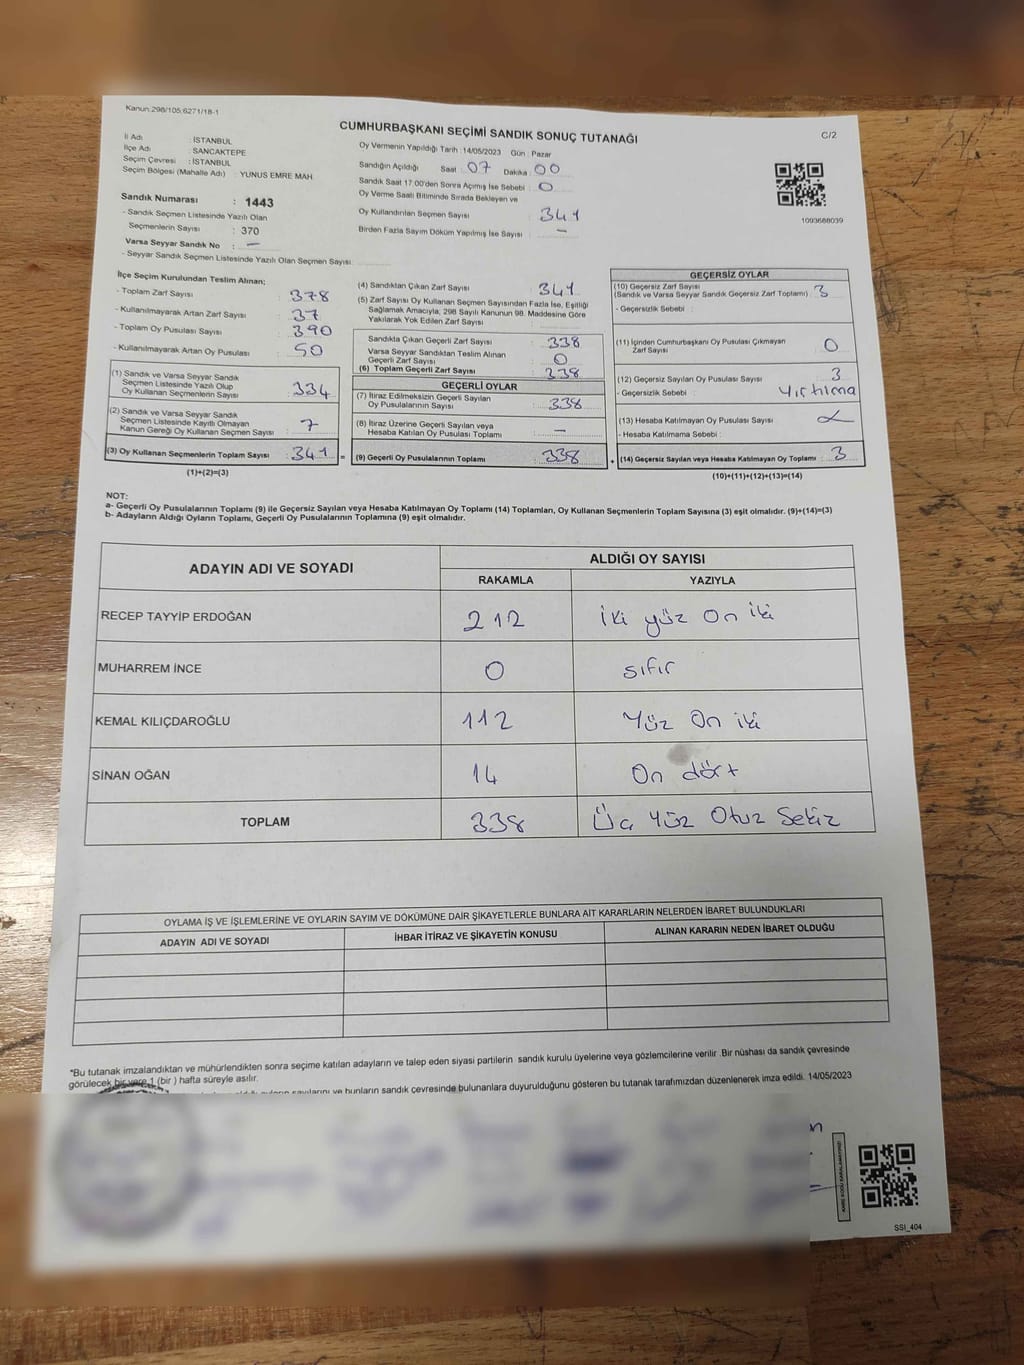 Kanun:298/105;6271/18-1
CUMHURBAŞKANI SEÇİMİ SANDIK SONUÇ TUTANAĞI
C/2
İl Adı : İSTANBUL
İlçe Adı : SANCAKTEPE
Seçim Çevresi : İSTANBUL
Seçim Bölgesi (Mahalle Adı) : YUNUS EMRE MAH.
Sandık Numarası : 1443
- Sandık Seçmen Listesinde Yazılı Olan
Seçmenlerin Sayısı : 370
Varsa Seyyar Sandık No : —
- Seyyar Sandık Seçmen Listesinde Yazılı Olan Seçmen Sayısı:
Oy Vermenin Yapıldığı Tarih : 14/05/2023 Gün : Pazar
Sandığın Açıldığı Saat : 07 Dakika : 00
Sandık Saat 17.00'den Sonra Açımış İse Sebebi : 0
Oy Verme Saati Bitiminde Sırada Bekleyen ve
Oy Kullandırılan Seçmen Sayısı : 341
Birden Fazla Sayım Döküm Yapılmış İse Sayısı : —
1093688039
İlçe Seçim Kurulundan Teslim Alınan;
- Toplam Zarf Sayısı : 378
- Kullanılmayarak Artan Zarf Sayısı : 37
- Toplam Oy Pusulası Sayısı : 390
- Kullanılmayarak Artan Oy Pusulası : 50
(1) Sandık ve Varsa Seyyar Sandık
Seçmen Listesinde Yazılı Olup
Oy Kullanan Seçmenlerin Sayısı : 334
(2) Sandık ve Varsa Seyyar Sandık
Seçmen Listesinde Kayıtlı Olmayan
Kanun Gereği Oy Kullanan Seçmen Sayısı : 7
(3) Oy Kullanan Seçmenlerin Toplam Sayısı : 341 =
(1)+(2)=(3)
(4) Sandıktan Çıkan Zarf Sayısı : 341
(5) Zarf Sayısı Oy Kullanan Seçmen Sayısından Fazla İse, Eşitliği
Sağlamak Amacıyla, 298 Sayılı Kanunun 98. Maddesine Göre
Yakılarak Yok Edilen Zarf Sayısı :
Sandıkta Çıkan Geçerli Zarf Sayısı : 338
Varsa Seyyar Sandıktan Teslim Alınan
Geçerli Zarf Sayısı : 0
(6) Toplam Geçerli Zarf Sayısı : 338
GEÇERLİ OYLAR
(7) İtiraz Edilmeksizin Geçerli Sayılan
Oy Pusulalarının Sayısı : 338
(8) İtiraz Üzerine Geçerli Sayılan veya
Hesaba Katılan Oy Pusulası Toplamı : —
(9) Geçerli Oy Pusulalarının Toplamı : 338 +
GEÇERSİZ OYLAR
(10) Geçersiz Zarf Sayısı
(Sandık ve Varsa Seyyar Sandık Geçersiz Zarf Toplamı) : 3
- Geçersizlik Sebebi :
(11) İçinden Cumhurbaşkanı Oy Pusulası Çıkmayan
Zarf Sayısı : 0
(12) Geçersiz Sayılan Oy Pusulası Sayısı : 3
- Geçersizlik Sebebi : Yırtılma
(13) Hesaba Katılmayan Oy Pusulası Sayısı :
- Hesaba Katılmama Sebebi :
(14) Geçersiz Sayılan veya Hesaba Katılmayan Oy Toplamı : 3
(10)+(11)+(12)+(13)=(14)
NOT:
a- Geçerli Oy Pusulalarının Toplamı (9) ile Geçersiz Sayılan veya Hesaba Katılmayan Oy Toplamı (14) Toplamları, Oy Kullanan Seçmenlerin Toplam Sayısına (3) eşit olmalıdır. (9)+(14)=(3)
b- Adayların Aldığı Oyların Toplamı, Geçerli Oy Pusulalarının Toplamına (9) eşit olmalıdır.
ADAYIN ADI VE SOYADI
ALDIĞI OY SAYISI
RAKAMLA YAZIYLA
RECEP TAYYİP ERDOĞAN 212 İki yüz On iki
MUHARREM İNCE 0 sıfır
KEMAL KILIÇDAROĞLU 112 Yüz On iki
SİNAN OĞAN 14 On dört
TOPLAM 338 Üç Yüz Otuz Sekiz
OYLAMA İŞ VE İŞLEMLERİNE VE OYLARIN SAYIM VE DÖKÜMÜNE DAİR ŞİKAYETLERLE BUNLARA AİT KARARLARIN NELERDEN İBARET BULUNDUKLARI
ADAYIN ADI VE SOYADI İHBAR İTİRAZ VE ŞİKAYETİN KONUSU ALINAN KARARIN NEDEN İBARET OLDUĞU
*Bu tutanak imzalandıktan ve mühürlendikten sonra seçime katılan adayların ve talep eden siyasi partilerin sandık kurulu üyelerine veya gözlemcilerine verilir .Bir nüshası da sandık çevresinde
görülecek bir yere 1 (bir ) hafta süreyle asılır.
sayılarını ve bunların sandık çevresinde bulunanlara duyurulduğunu gösteren bu tutanak tarafımızdan düzenlenerek imza edildi. 14/05/2023
KARE KODU KARALAMAYINIZ!
SSI_404